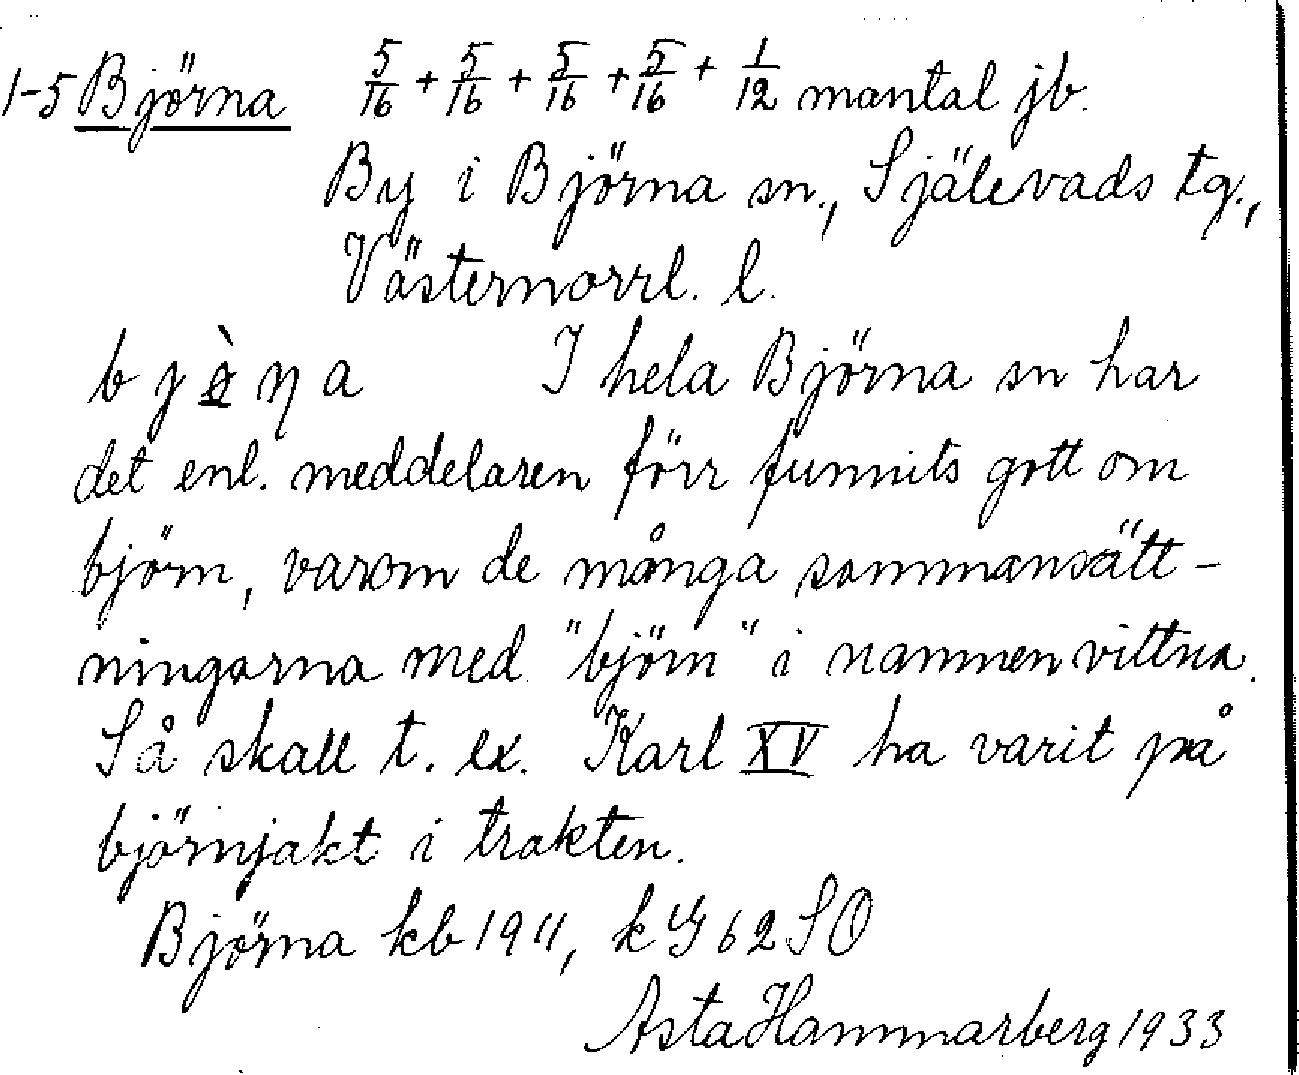 1-5 Björna 5/16 + 5/16 + 5/16 + 5/16 + 1/12 mantal jb.
By i Björna sn., Själevads tg.,
Västernorrl. l.
I hela Björna sn har
det enl. meddelaren förr funnits gott om
björn, varom de många sammansätt-
ningarna med "björn" i namnen vittna.
Så skall t. ex. Karl XV ha varit på
björnjakt i trakten.
Björna kb 1911, k 62 SO
Asta Hammarberg 1933